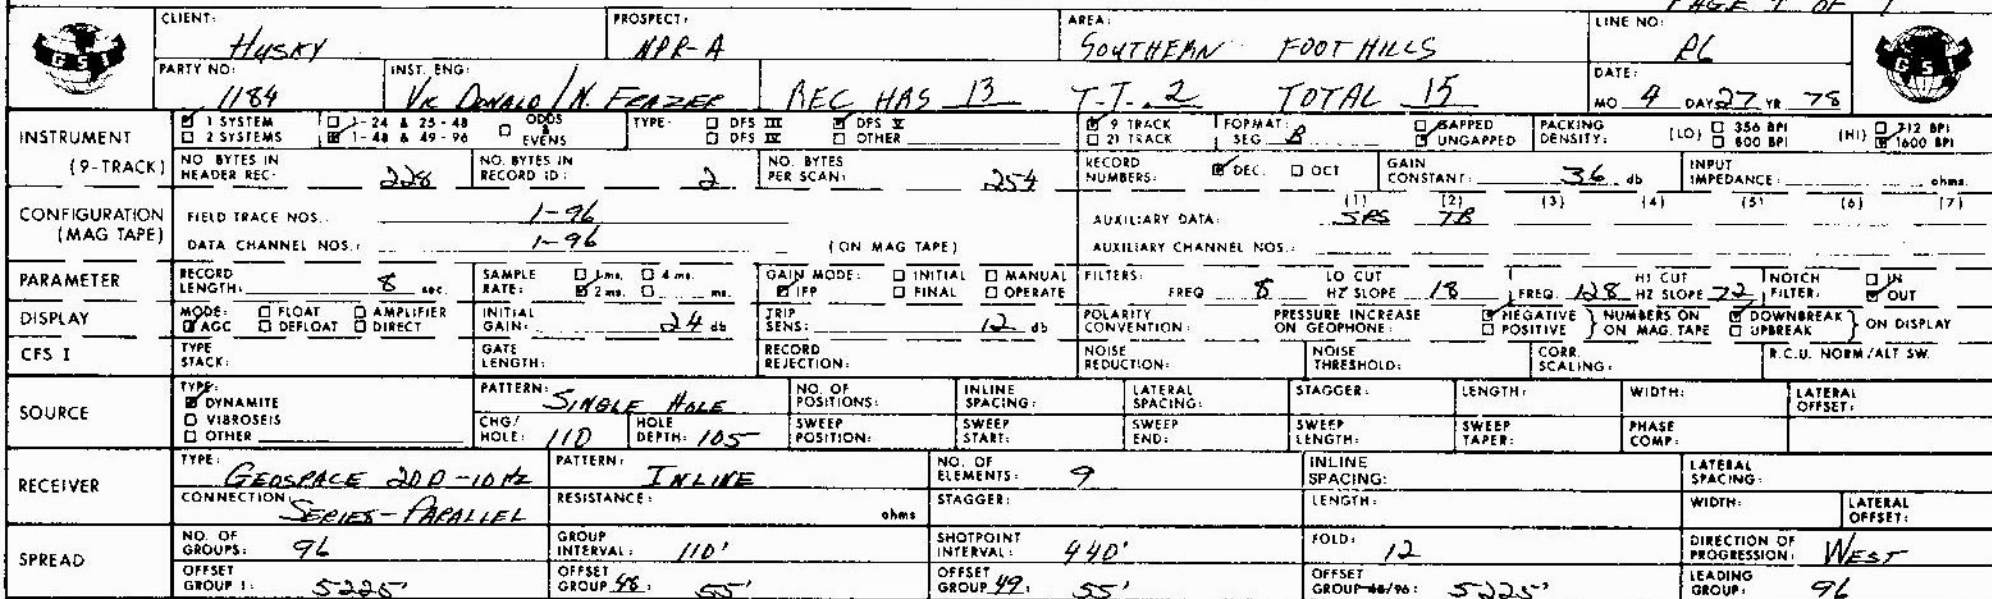 PAGE 1 OF 1
CLIENT: HUSKY PROSPECT: NPR-A AREA: SOUTHERN FOOTHILLS LINE NO: R6
GSI
PARTY NO: 1184 INST. ENG: VIC DONALD / N. FRAZER REC HAS 13 T.T. 2 TOTAL 15 DATE: MO 4 DAY 27 YR 78
GSI
INSTRUMENT (9-TRACK)
1 SYSTEM 1-24 & 25-48 ODDS & EVENS TYPE: DFS III DFS V 9 TRACK FORMAT: GAPPED PACKING DENSITY: (LO) 356 BPI (HI) 712 BPI
2 SYSTEMS 1-48 & 49-96 DFS IV OTHER 21 TRACK SEG B UNGAPPED 800 BPI 1600 BPI
NO. BYTES IN HEADER REC: 228 NO. BYTES IN RECORD ID: 2 NO. BYTES PER SCAN: 254 RECORD NUMBERS: DEC. OCT GAIN CONSTANT: 36 db INPUT IMPEDANCE: ohms.
CONFIGURATION (MAG TAPE)
FIELD TRACE NOS.: 1-96 AUXILIARY DATA: (1) SRS (2) TB (3) (4) (5) (6) (7)
DATA CHANNEL NOS.: 1-96 (ON MAG TAPE) AUXILIARY CHANNEL NOS.:
PARAMETER RECORD LENGTH: 8 sec. SAMPLE RATE: 1 ms. 4 ms. 2 ms. ms. GAIN MODE: INITIAL MANUAL IFP FINAL OPERATE FILTERS: LO CUT FREQ 8 HZ SLOPE 18 HI CUT FREQ. 128 HZ SLOPE 72 NOTCH FILTER: IN OUT
DISPLAY MODE: FLOAT AMPLIFIER AGC DEFLOAT DIRECT INITIAL GAIN: 24 db TRIP SENS: 12 db POLARITY CONVENTION: PRESSURE INCREASE ON GEOPHONE: NEGATIVE POSITIVE NUMBERS ON ON MAG. TAPE DOWNBREAK UPBREAK ON DISPLAY
CFS I TYPE STACK: GATE LENGTH: RECORD REJECTION: NOISE REDUCTION: NOISE THRESHOLD: CORR. SCALING: R.C.U. NORM/ALT SW.
SOURCE TYPE: DYNAMITE VIBROSEIS OTHER
PATTERN: SINGLE HOLE NO. OF POSITIONS: INLINE SPACING: LATERAL SPACING: STAGGER: LENGTH: WIDTH: LATERAL OFFSET:
CHG/HOLE: 110 HOLE DEPTH: 105 SWEEP POSITION: SWEEP START: SWEEP END: SWEEP LENGTH: SWEEP TAPER: PHASE COMP:
RECEIVER TYPE: GEOSPACE 20D-10HZ PATTERN: INLINE NO. OF ELEMENTS: 9 INLINE SPACING: LATERAL SPACING:
CONNECTION: SERIES-PARALLEL RESISTANCE: ohms STAGGER: LENGTH: WIDTH: LATERAL OFFSET:
SPREAD NO. OF GROUPS: 96 GROUP INTERVAL: 110' SHOTPOINT INTERVAL: 440' FOLD: 12 DIRECTION OF PROGRESSION: WEST
OFFSET GROUP 1: 5225' OFFSET GROUP 48: 55' OFFSET GROUP 49: 55' OFFSET GROUP 48/96: 5225' LEADING GROUP: 96